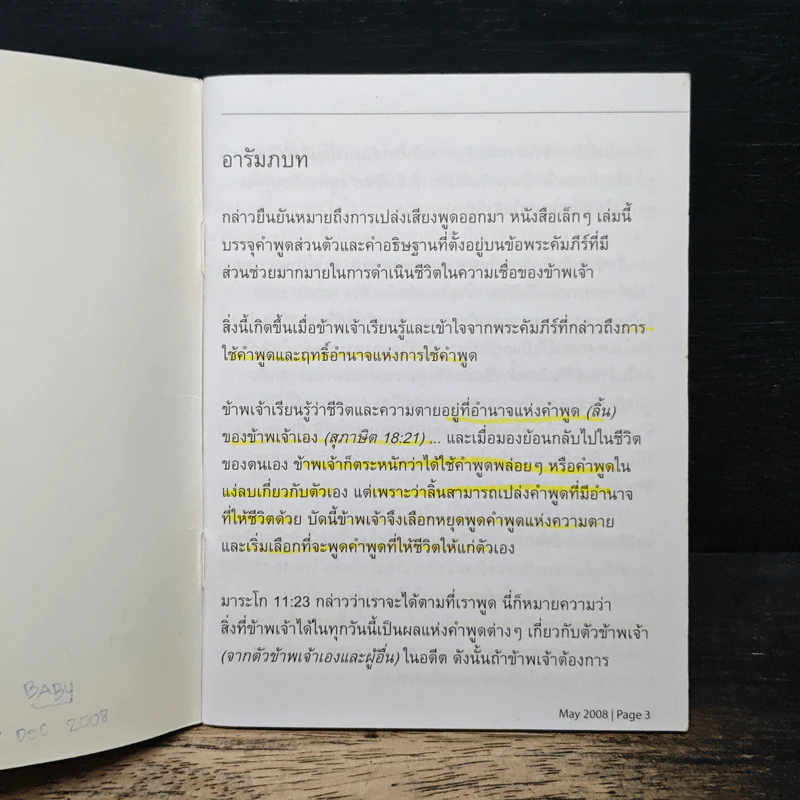 BABY
DEC 2008
อารัมภบท
กล่าวยืนยันหมายถึงการเปล่งเสียงพูดออกมา หนังสือเล็กๆ เล่มนี้
บรรจุคำพูดส่วนตัวและคำอธิษฐานที่ตั้งอยู่บนข้อพระคัมภีร์ที่มี
ส่วนช่วยมากมายในการดำเนินชีวิตในความเชื่อของข้าพเจ้า
สิ่งนี้เกิดขึ้นเมื่อข้าพเจ้าเรียนรู้และเข้าใจจากพระคัมภีร์ที่กล่าวถึงการ
ใช้คำพูดและฤทธิ์อำนาจแห่งการใช้คำพูด
ข้าพเจ้าเรียนรู้ว่าชีวิตและความตายอยู่ที่อำนาจแห่งคำพูด (ลิ้น)
ของข้าพเจ้าเอง (สุภาษิต 18:21) ... และเมื่อมองย้อนกลับไปในชีวิต
ของตนเอง ข้าพเจ้าก็ตระหนักว่าได้ใช้คำพูดพล่อยๆ หรือคำพูดใน
แง่ลบเกี่ยวกับตัวเอง แต่เพราะว่าลิ้นสามารถเปล่งคำพูดที่มีอำนาจ
ที่ให้ชีวิตด้วย บัดนี้ข้าพเจ้าจึงเลือกหยุดพูดคำพูดแห่งความตาย
และเริ่มเลือกที่จะพูดคำพูดที่ให้ชีวิตให้แก่ตัวเอง
มาระโก 11:23 กล่าวว่าเราจะได้ตามที่เราพูด นี่ก็หมายความว่า
สิ่งที่ข้าพเจ้าได้ในทุกวันนี้เป็นผลแห่งคำพูดต่างๆ เกี่ยวกับตัวข้าพเจ้า
(จากตัวข้าพเจ้าเองและผู้อื่น) ในอดีต ดังนั้นถ้าข้าพเจ้าต้องการ
May 2008 | Page 3